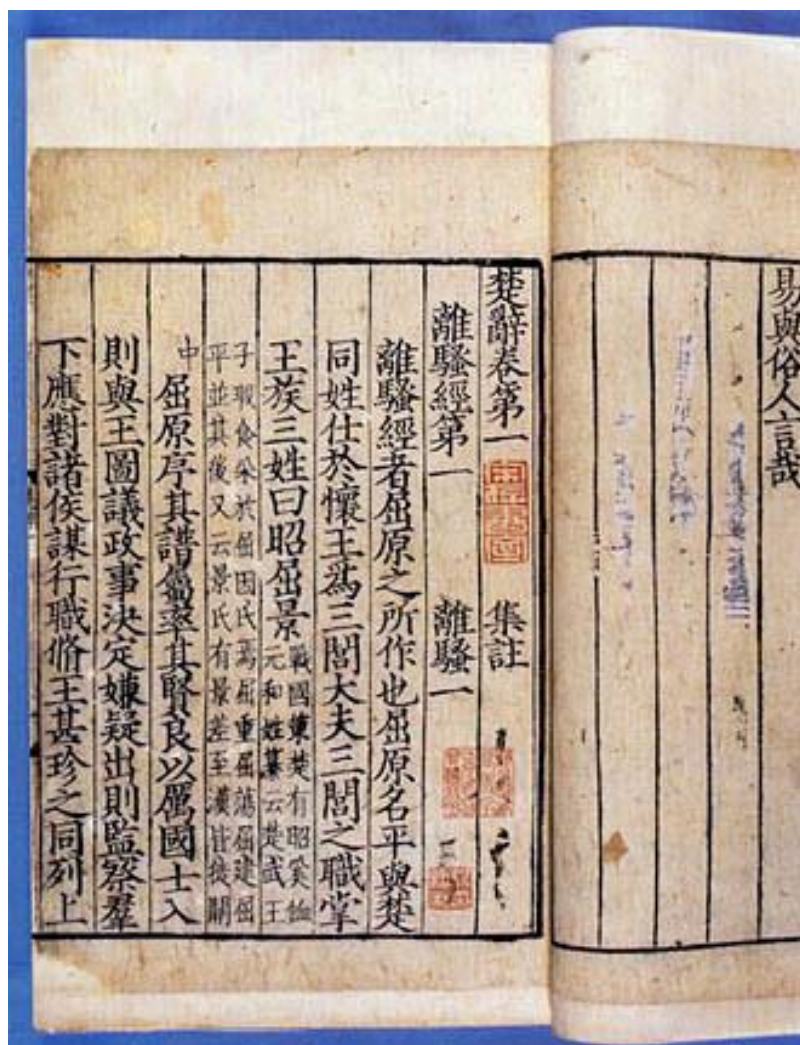 易與俗人言哉
楚辭卷第一 集註
離騷經第一 離騷一
離騷經者屈原之所作也屈原名平與楚
同姓仕於懷王爲三閭大夫三閭之職掌
王族三姓曰昭屈景
戰國策楚有昭奚恤
元和姓纂云楚武王
子瑕食采於屈因氏焉屈重屈蕩屈建屈
平並其後又云景氏有景差至漢皆徙關
中
屈原序其譜屬率其賢良以厲國士入
則與王圖議政事決定嫌疑出則監察羣
下應對諸侯謀行職脩王甚珍之同列上